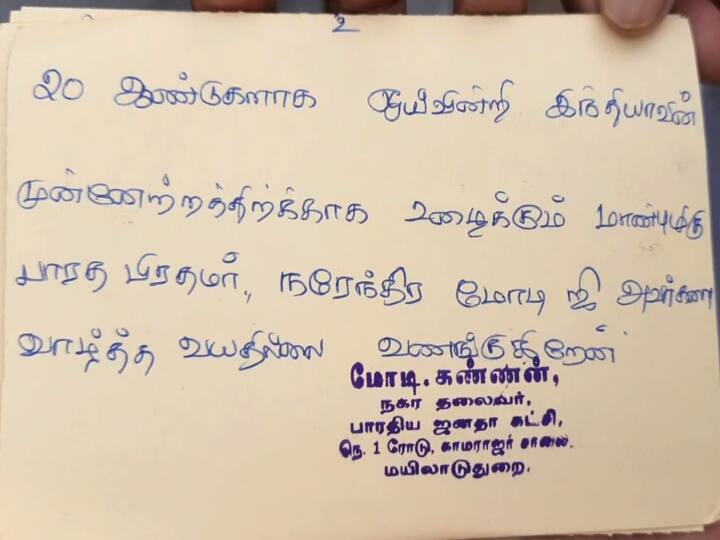 2
20 ஆண்டுகளாக ஓய்வின்றி இந்தியாவின்
முன்னேற்றத்திற்க்காக உழைக்கும் மாண்புமிகு
பாரத பிரதமர், நரேந்திர மோடி ஜி அவர்களை
வாழ்த்த வயதில்லை வணங்குகிறேன்
மோடி. கண்ணன்,
நகர தலைவர்,
பாரதிய ஜனதா கட்சி,
நெ. 1 ரோடு, காமராஜர் சாலை.
மயிலாடுதுறை.